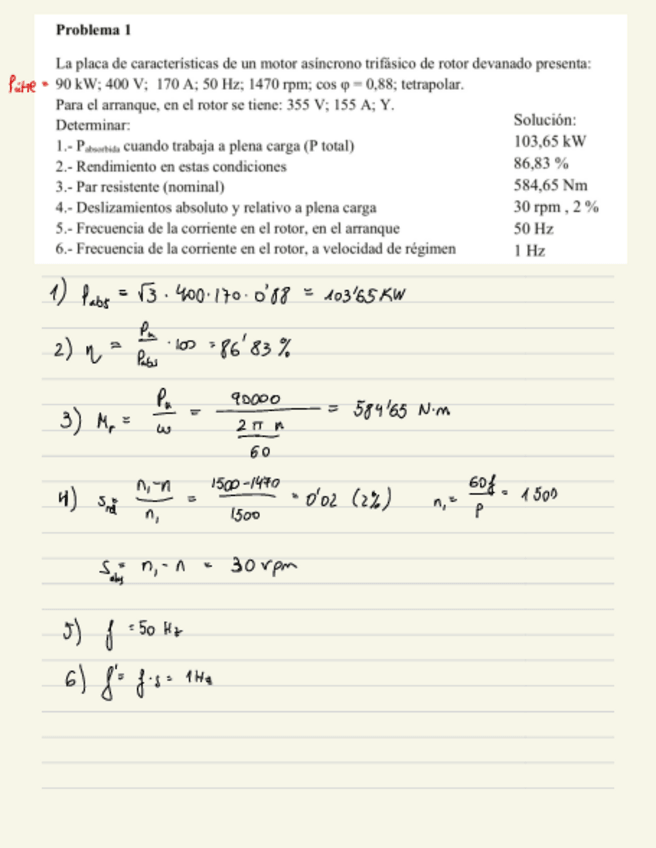 Problema 1
La placa de características de un motor asíncrono trifásico de rotor devanado presenta:
Pútil = 90 kW; 400 V; 170 A; 50 Hz; 1470 rpm; cos φ = 0,88; tetrapolar.
Para el arranque, en el rotor se tiene: 355 V; 155 A; Y.
Determinar:
Solución:
1.- Pabsorbida cuando trabaja a plena carga (P total) 103,65 kW
2.- Rendimiento en estas condiciones 86,83 %
3.- Par resistente (nominal) 584,65 Nm
4.- Deslizamientos absoluto y relativo a plena carga 30 rpm , 2 %
5.- Frecuencia de la corriente en el rotor, en el arranque 50 Hz
6.- Frecuencia de la corriente en el rotor, a velocidad de régimen 1 Hz
1) Pabs = √3 · 400·170·0'88 = 103'65 KW
2) η = Pu/Pabs · 100 = 86'83 %
3) Mr = Pu/ω = 90000/(2πn/60) = 584'65 N·m
4) Srel = (n₁-n)/n₁ = (1500-1470)/1500 = 0'02 (2%) n₁ = 60f/p = 1500
Sabs = n₁ - n = 30 rpm
5) f = 50 Hz
6) f' = f·s = 1 Hz